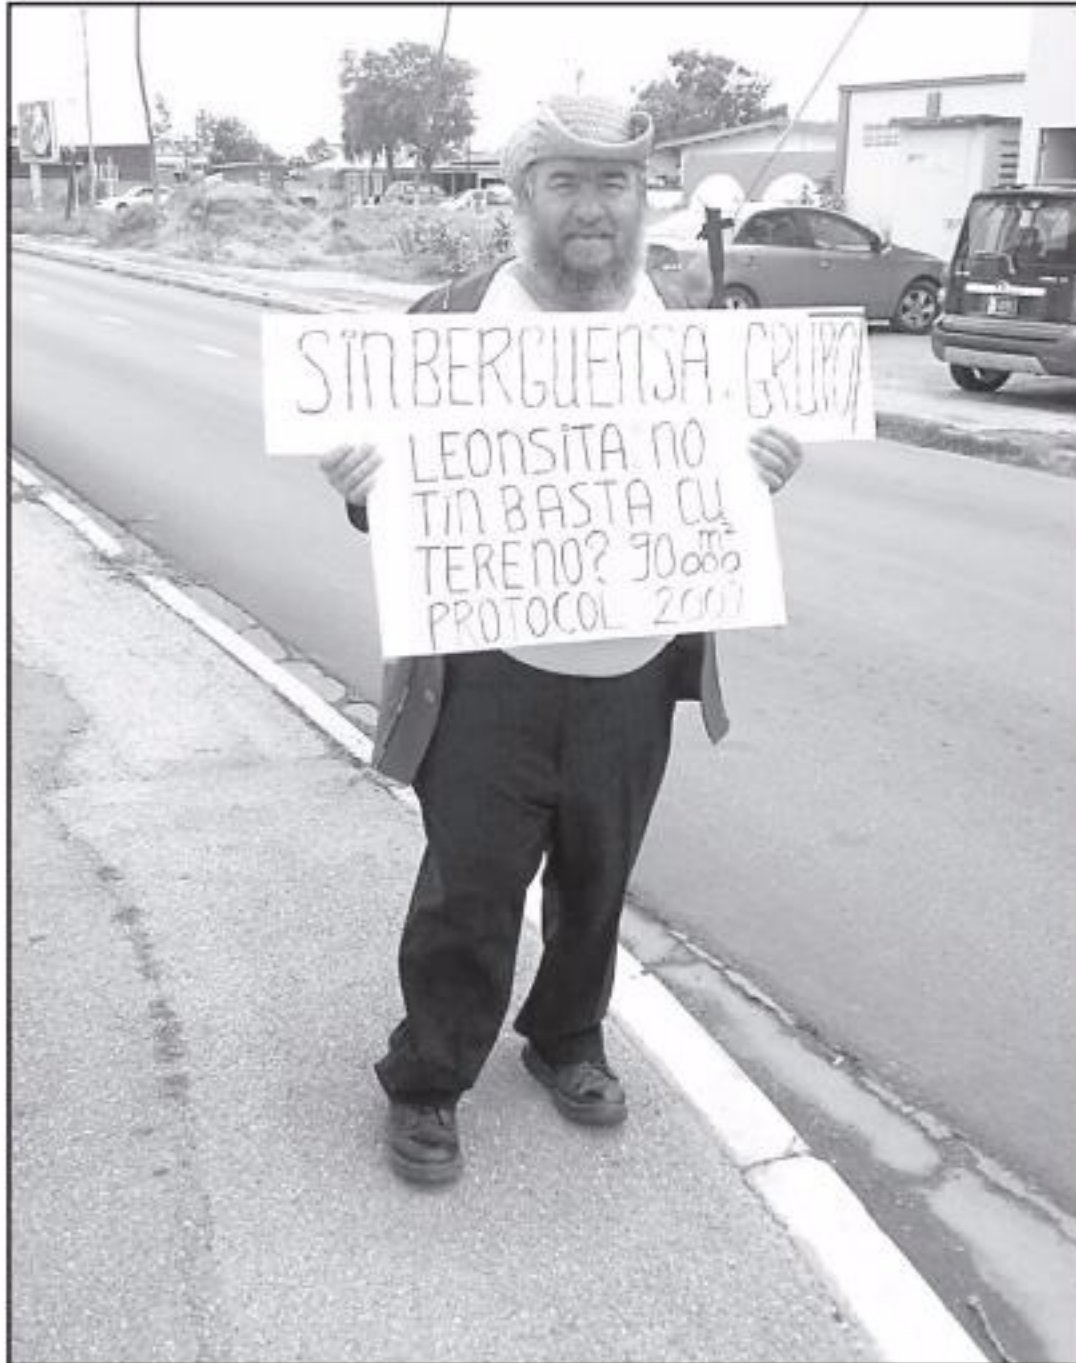 SINBERGUENSA. GRUPO
LEONSITA NO
TIN BASTA CU
TERENO? 90000 m²
PROTOCOL 2007